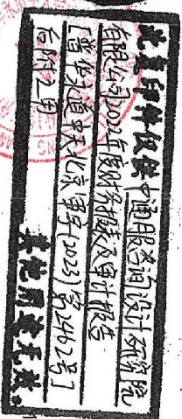 此复印件仅供中通服咨询设计研究院
有限公司2022年度财务报表及审计报告
「普华永道中天北京审字(2023)第2462号」
后附之用
其他用途无效。